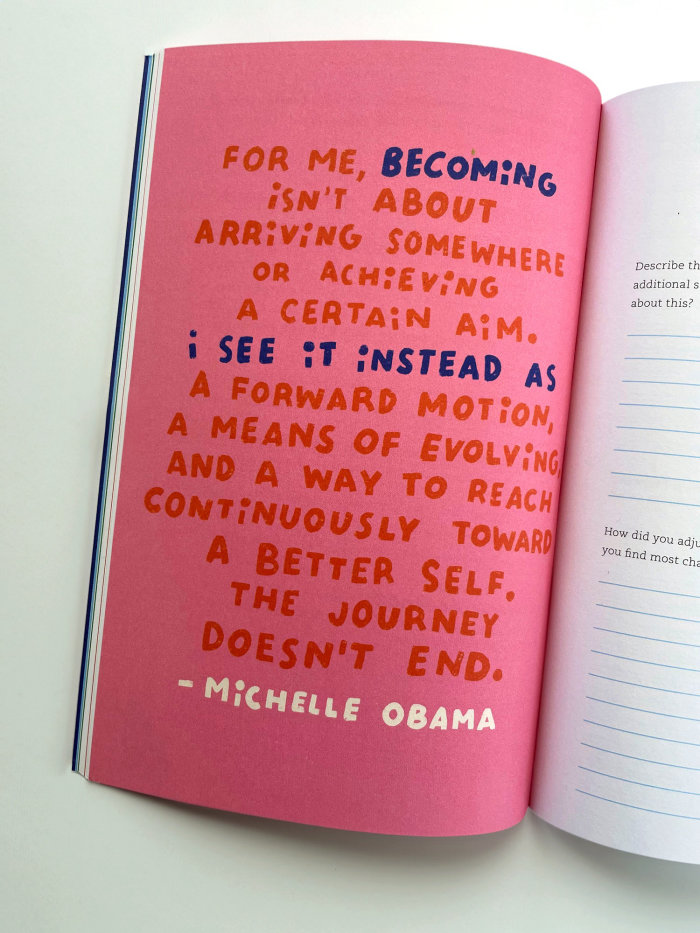 FOR ME, BECOMING
iSN'T ABOUT
ARRiViNG SOMEWHERE
OR ACHiEViNG
A CERTAiN AiM.
i SEE iT iNSTEAD AS
A FORWARD MOTiON,
A MEANS OF EVOLViNG,
AND A WAY TO REACH
CONTiNUOUSLY TOWARD
A BETTER SELF.
THE JOURNEY
DOESN'T END.
– MiCHELLE OBAMA
Describe
additional
about this?
How did you
you find most